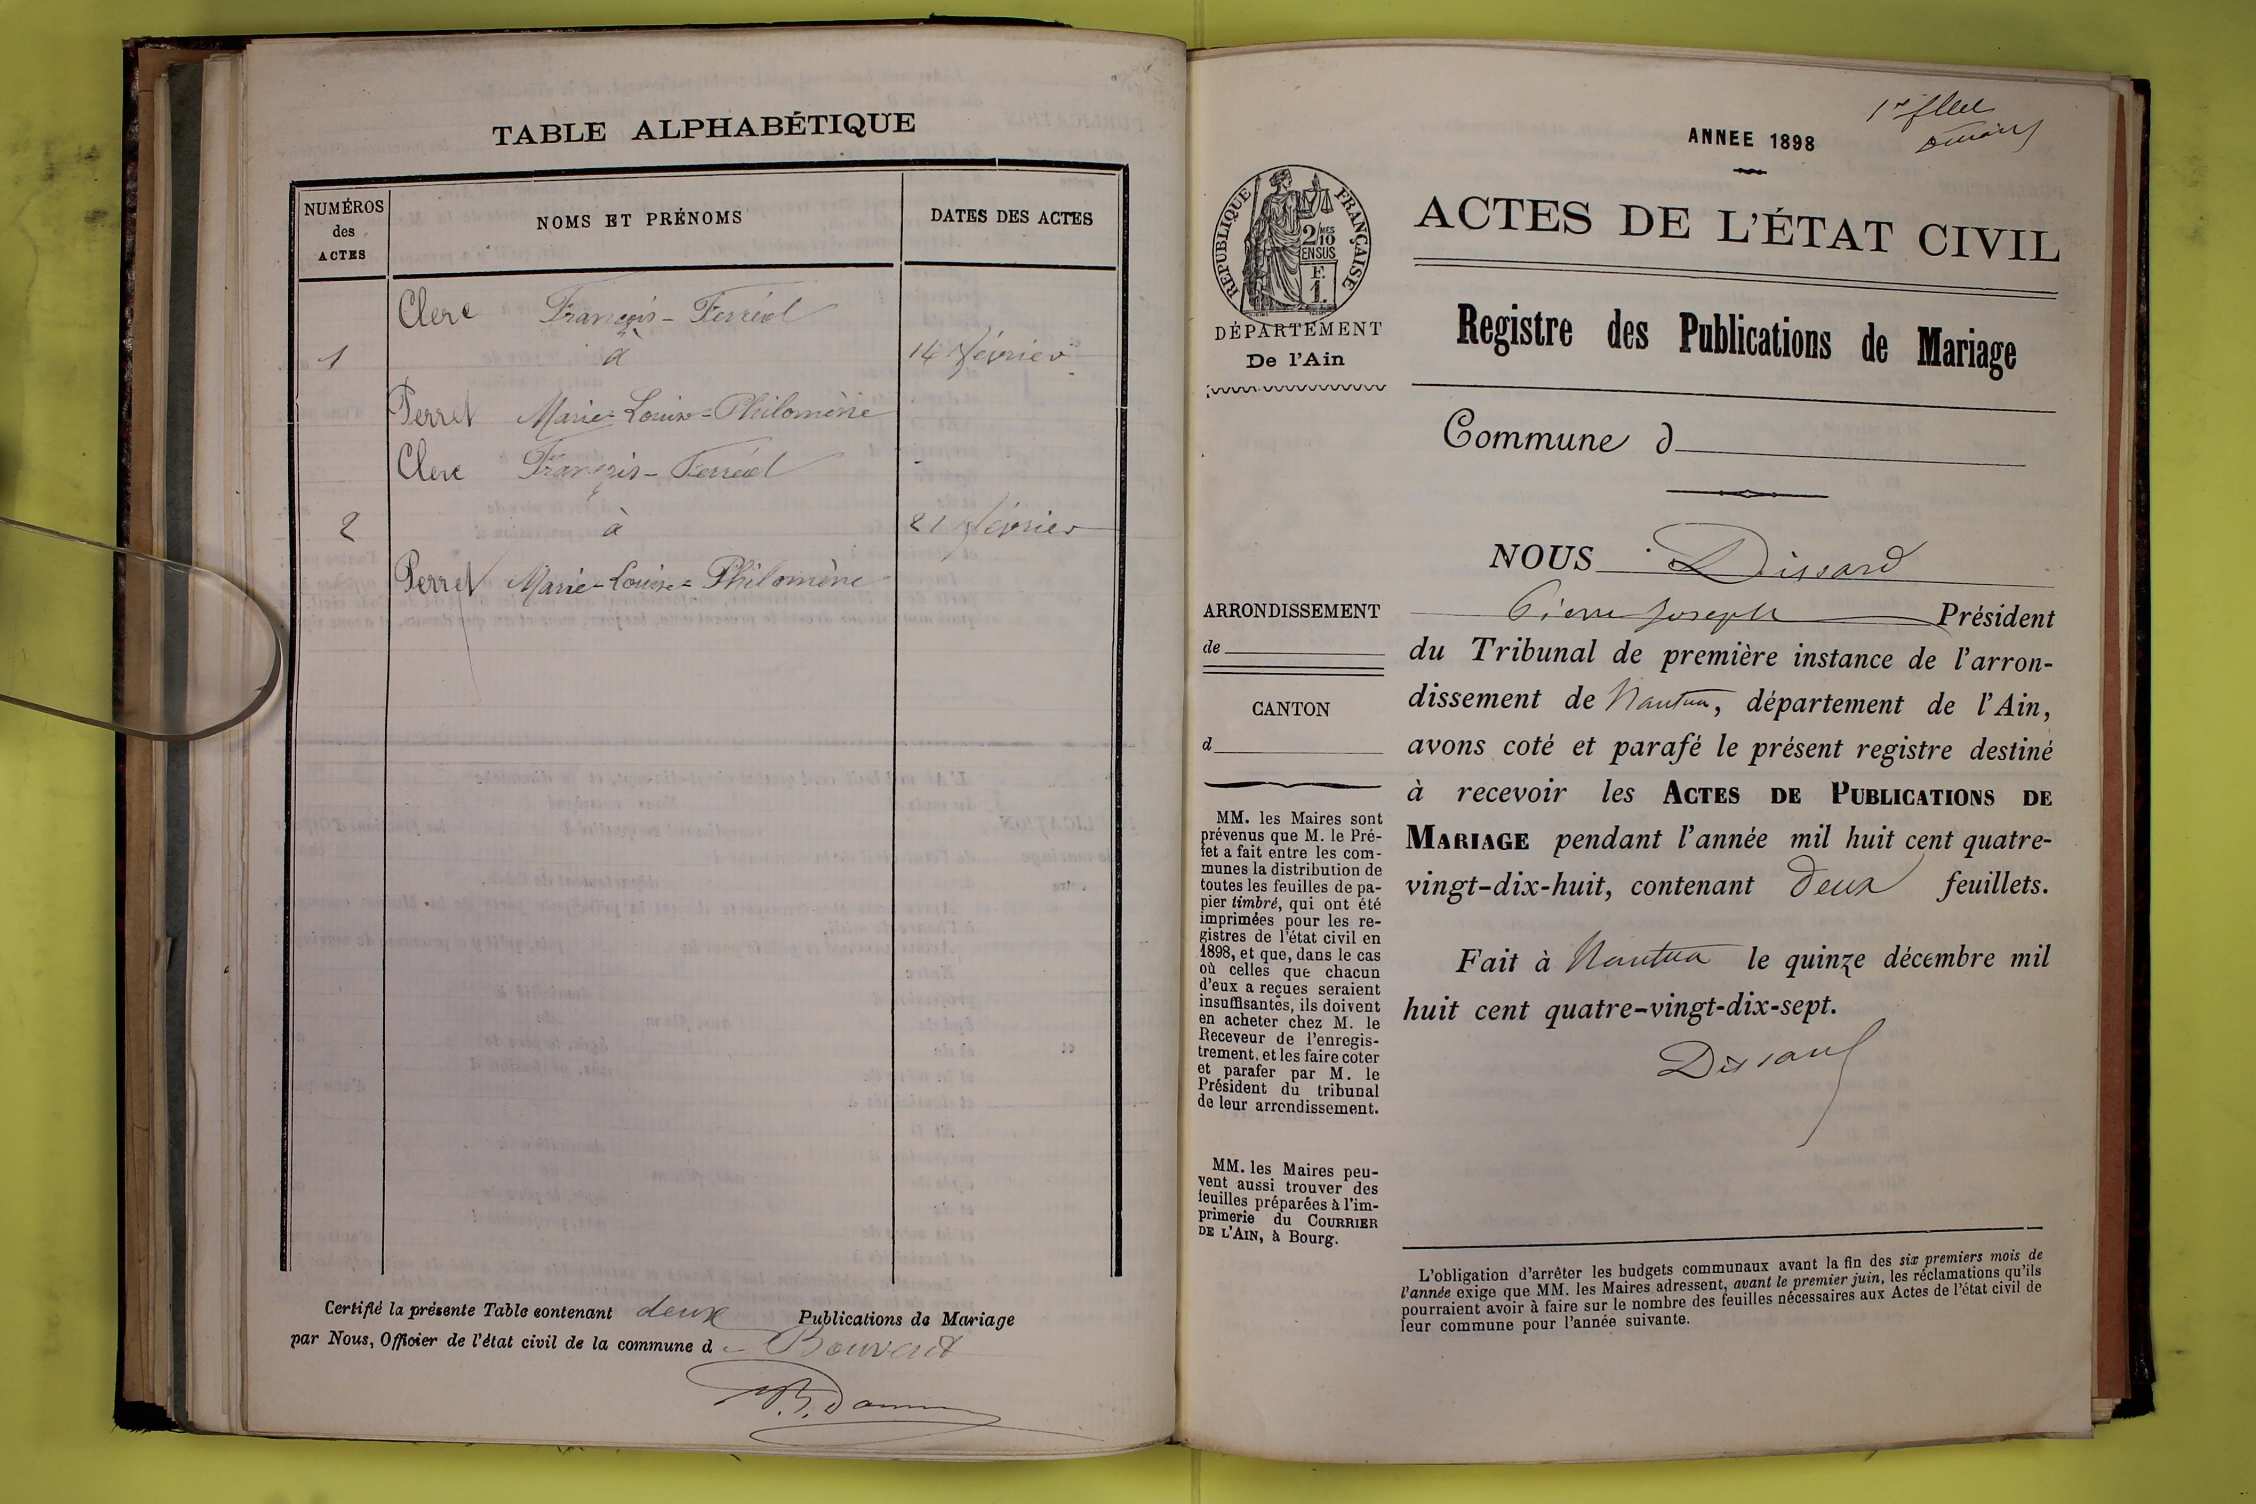 TABLE ALPHABÉTIQUE
NUMÉROS
des
ACTES
NOMS ET PRÉNOMS
DATES DES ACTES
Clerc François-Ferréol
1 à 14 février
Perret Marie-Louise-Philomène
Clerc François-Ferréol
2 à 21 février
Perret Marie-Louise-Philomène
Certifié la présente Table contenant deux Publications de Mariage
par Nous, Officier de l'état civil de la commune d Bouvent
ANNEE 1898
RÉPUBLIQUE FRANÇAISE
2/10 MES
EN SUS
F.
1.
DÉPARTEMENT
De l'Ain
ARRONDISSEMENT
de
CANTON
d
MM. les Maires sont
prévenus que M. le Pré-
fet a fait entre les com-
munes la distribution de
toutes les feuilles de pa-
pier timbré, qui ont été
imprimées pour les re-
gistres de l'état civil en
1898, et que, dans le cas
où celles que chacun
d'eux a reçues seraient
insuffisantes, ils doivent
en acheter chez M. le
Receveur de l'enregis-
trement, et les faire coter
et parafer par M. le
Président du tribunal
de leur arrondissement.
MM. les Maires peu-
vent aussi trouver des
feuilles préparées à l'im-
primerie du COURRIER
DE L'AIN, à Bourg.
ACTES DE L'ÉTAT CIVIL
Registre des Publications de Mariage
Commune d
NOUS Dissard
Pierre Joseph Président
du Tribunal de première instance de l'arron-
dissement de Nantua, département de l'Ain,
avons coté et parafé le présent registre destiné
à recevoir les ACTES DE PUBLICATIONS DE
MARIAGE pendant l'année mil huit cent quatre-
vingt-dix-huit, contenant deux feuillets.
Fait à Nantua le quinze décembre mil
huit cent quatre-vingt-dix-sept.
Dissard
L'obligation d'arrêter les budgets communaux avant la fin des six premiers mois de
l'année exige que MM. les Maires adressent, avant le premier juin, les réclamations qu'ils
pourraient avoir à faire sur le nombre des feuilles nécessaires aux Actes de l'état civil de
leur commune pour l'année suivante.